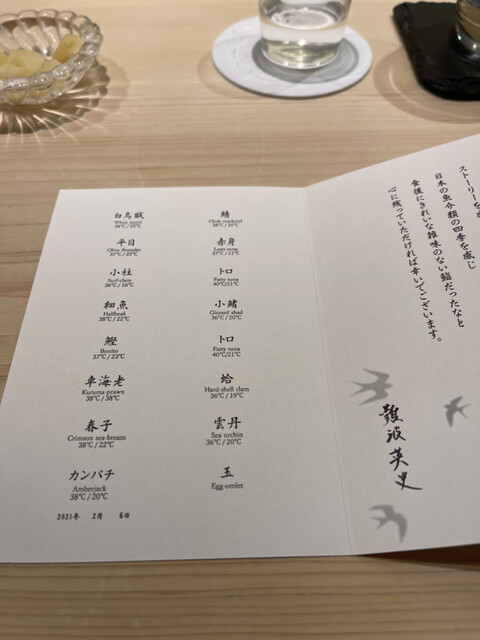 白烏賊
White squid
平目
Olive flounder
37℃/22℃
小柱
Surf-clam
36℃/16℃
細魚
Halfbeak
38℃/22℃
鰹
Bonito
37℃/23℃
車海老
Kuruma-prawn
38℃/38℃
春子
Crimson sea-bream
38℃/22℃
カンパチ
Amberjack
38℃/20℃
2021年 2月 6日
鯖
Chub mackerel
38℃/20℃
赤身
Lean tuna
37℃/21℃
トロ
Fatty tuna
40℃/21℃
小鰭
Gizzard shad
36℃/20℃
トロ
Fatty tuna
40℃/21℃
蛤
Hard-shell clam
36℃/19℃
雲丹
Sea urchin
36℃/20℃
玉
Egg-omlet
ストーリーを
日本の魚介類の四季を感じ
食後にきれいな雑味のない鮨だったなと
心に残っていただければ幸いでございます。
難波英史